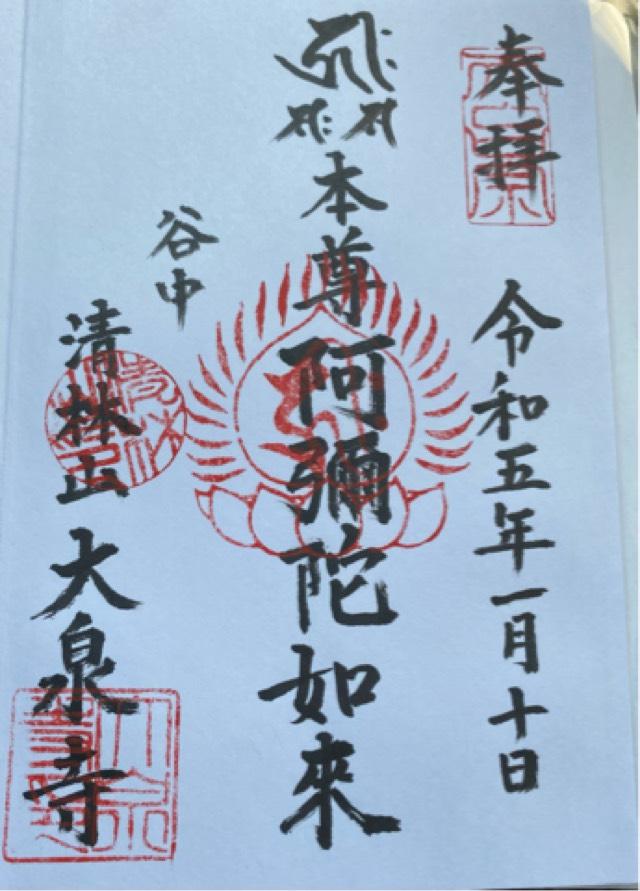 奉拝
令和五年一月十日
本尊阿彌陀如來
谷中
清林山大泉寺